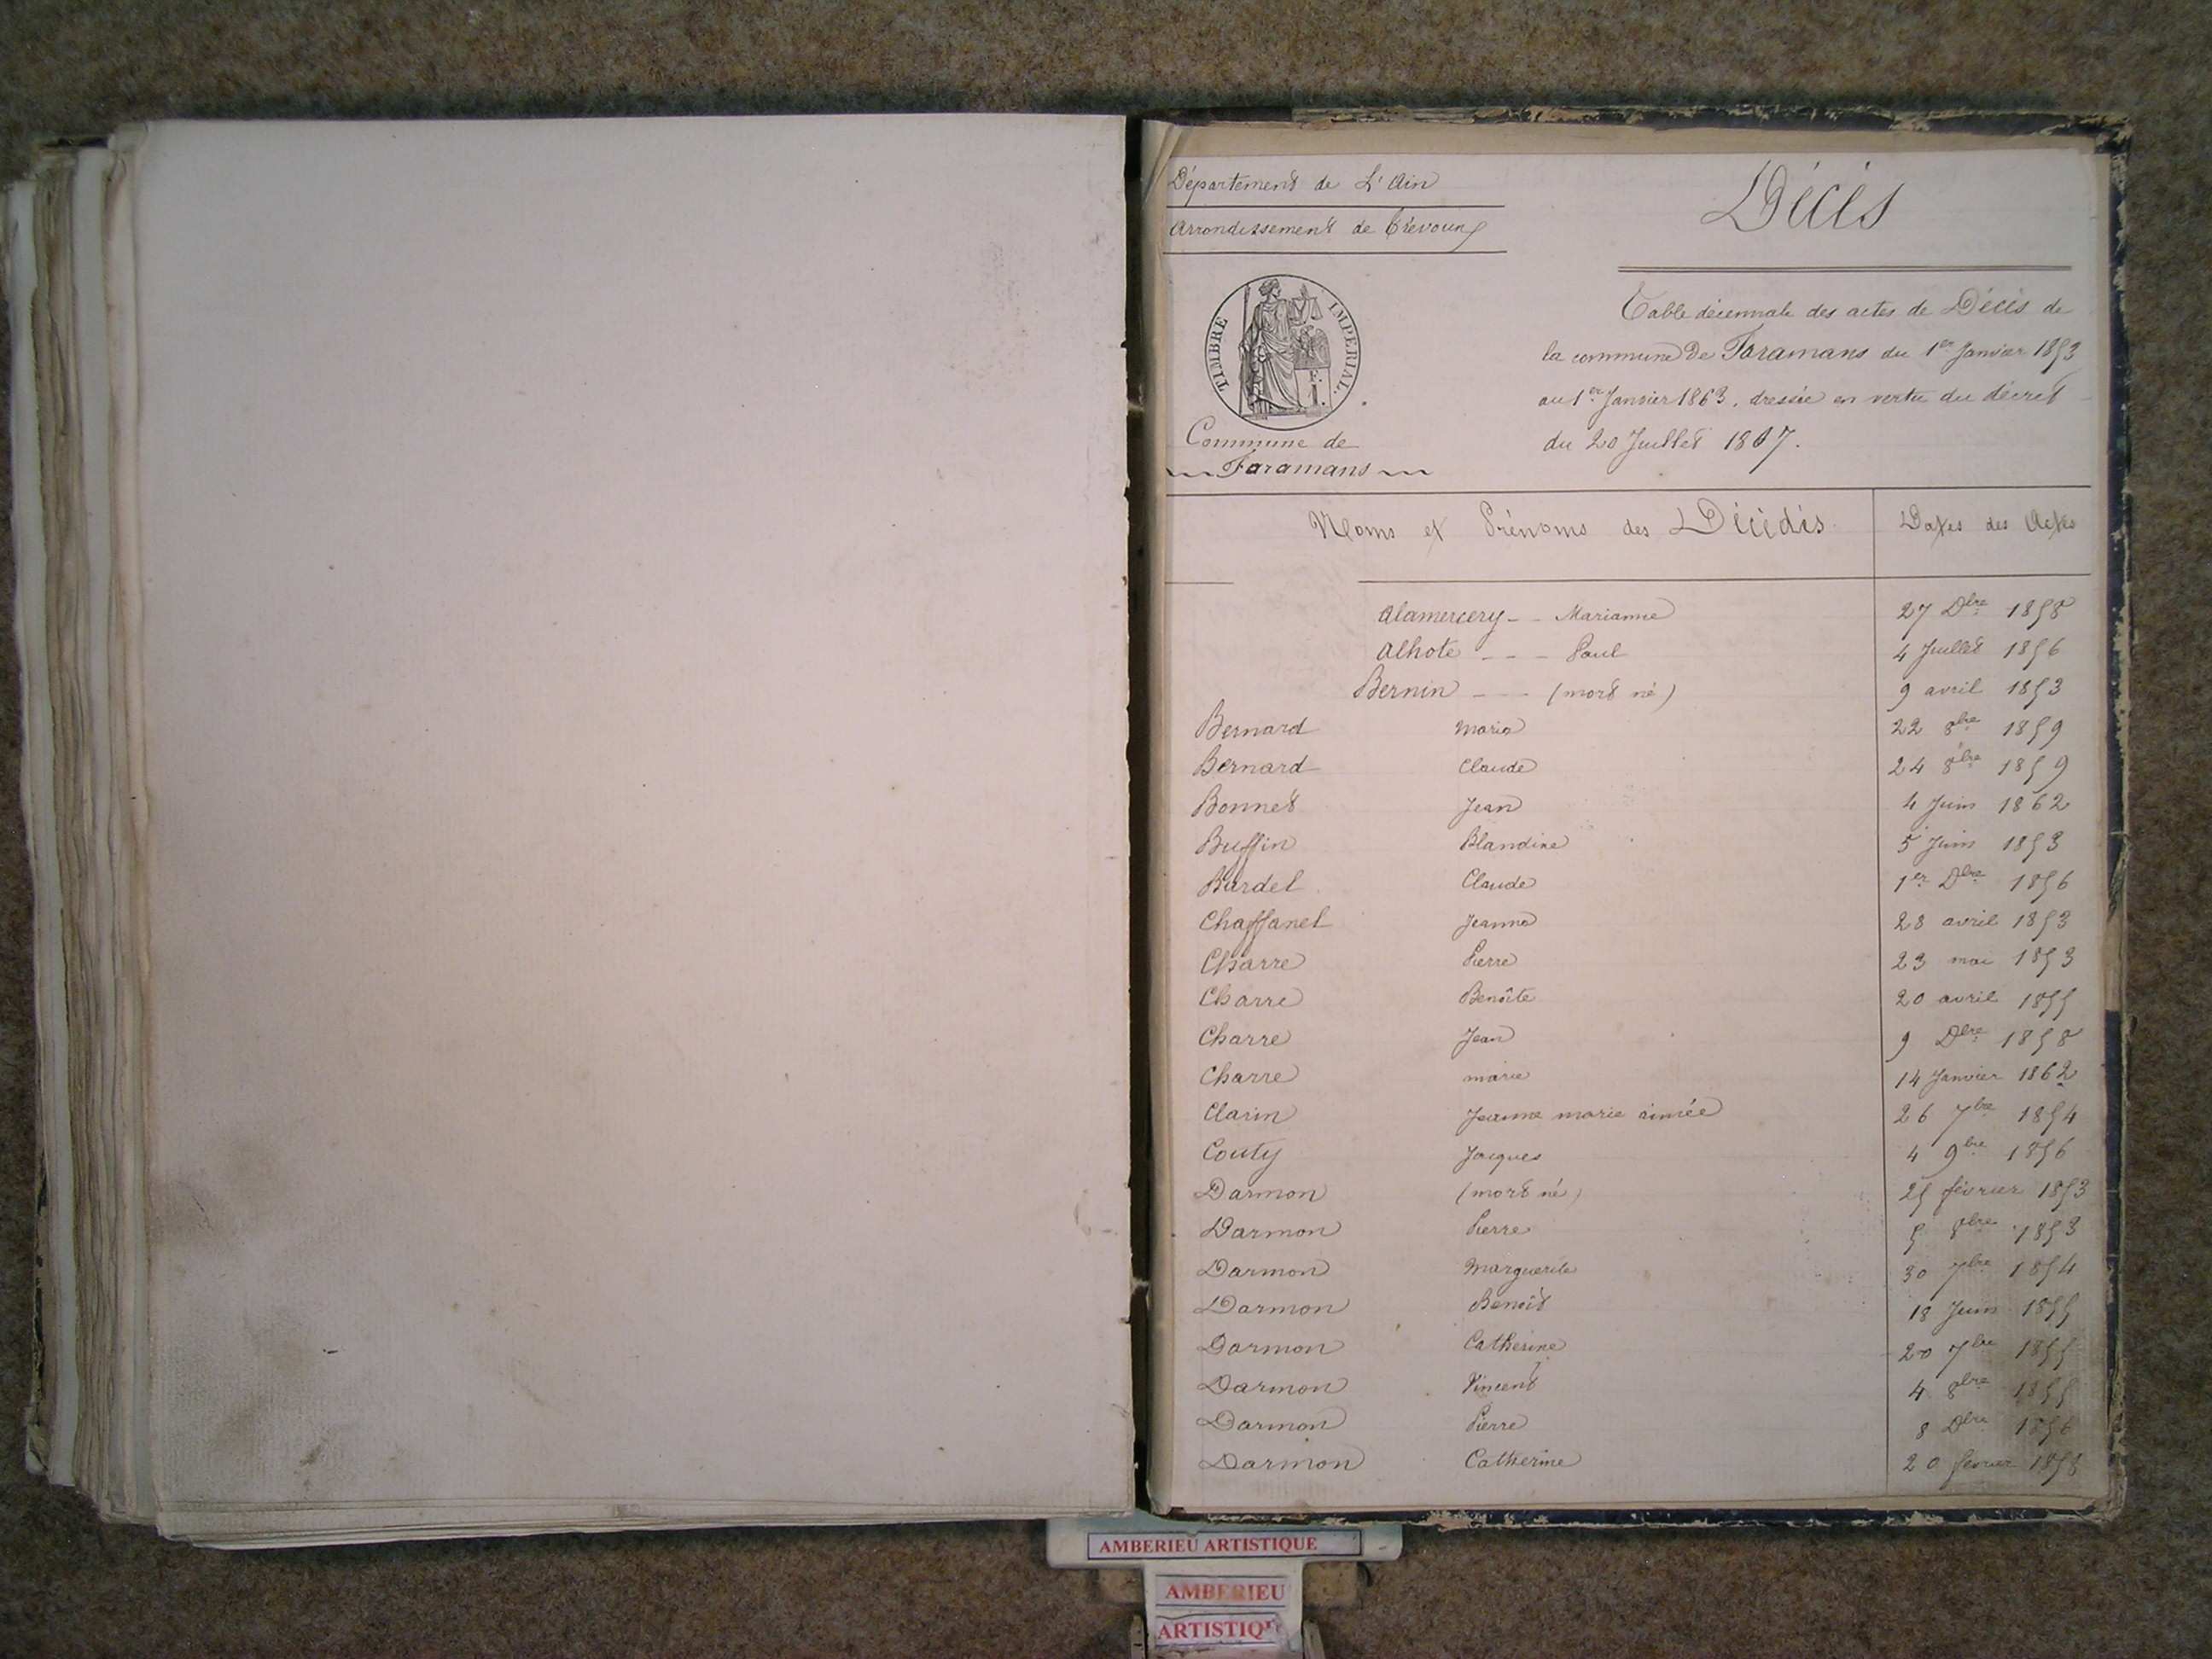 Département de L'Ain
Arrondissement de Trévoux
TIMBRE IMPERIAL.
E. I.
Commune de
Faramans
Décès
Table décennale des actes de Décès de
la commune De Faramans du 1er Janvier 1853
au 1er Janvier 1863, dressée en vertu du décret
du 20 Juillet 1807.
Noms et Prénoms des Décédés Dates des Actes
Alamercery -- Marianne 27 Dbre 1858
Alhote --- Paul 4 Juillet 1856
Bernin --- (mort né) 9 avril 1853
Bernard Maria 22 8bre 1859
Bernard Claude 24 8bre 1859
Bonnet Jean 4 Juin 1862
Buffin Blandine 5 Juin 1853
Burdel Claude 1er Dbre 1856
Chaffanel Jeanne 28 avril 1853
Charre Pierre 23 mai 1853
Charre Benoîte 20 avril 1855
Charre Jean 9 Dbre 1858
Charre marie 14 Janvier 1862
Clarin Jeanne marie aimée 26 7bre 1854
Couty Jacques 4 9bre 1856
Darmon (mort né) 25 février 1853
Darmon Pierre 5 8bre 1853
Darmon Marguerite 30 7bre 1854
Darmon Benoît 18 Juin 1855
Darmon Catherine 20 7bre 1855
Darmon Vincent 4 8bre 1855
Darmon Pierre 8 Dbre 1856
Darmon Catherine 20 février 1858
AMBERIEU ARTISTIQUE
AMBERIEU
ARTISTIQUE